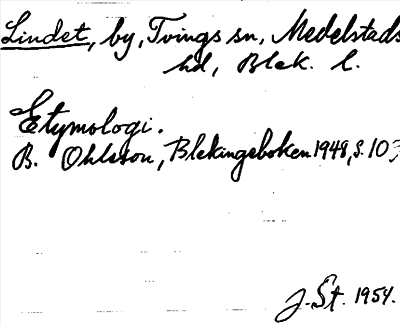 Lindet, by, Tvings sn, Medelstads
hd, Blek. l.
Etymologi.
B. Ohlsson, Blekingeboken 1948, s. 103
J. St. 1954.